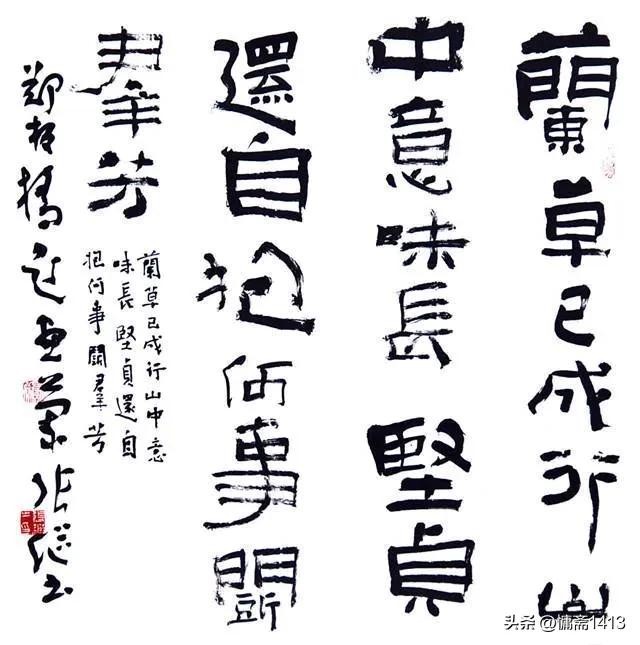 蘭草已成行山
中意味長堅貞
還自抱何事鬭
羣芳
蘭草已成行山中意
味長堅貞還自
抱何事鬭羣芳
鄭板橋題畫蘭張繼書
头条 @慵斋1413